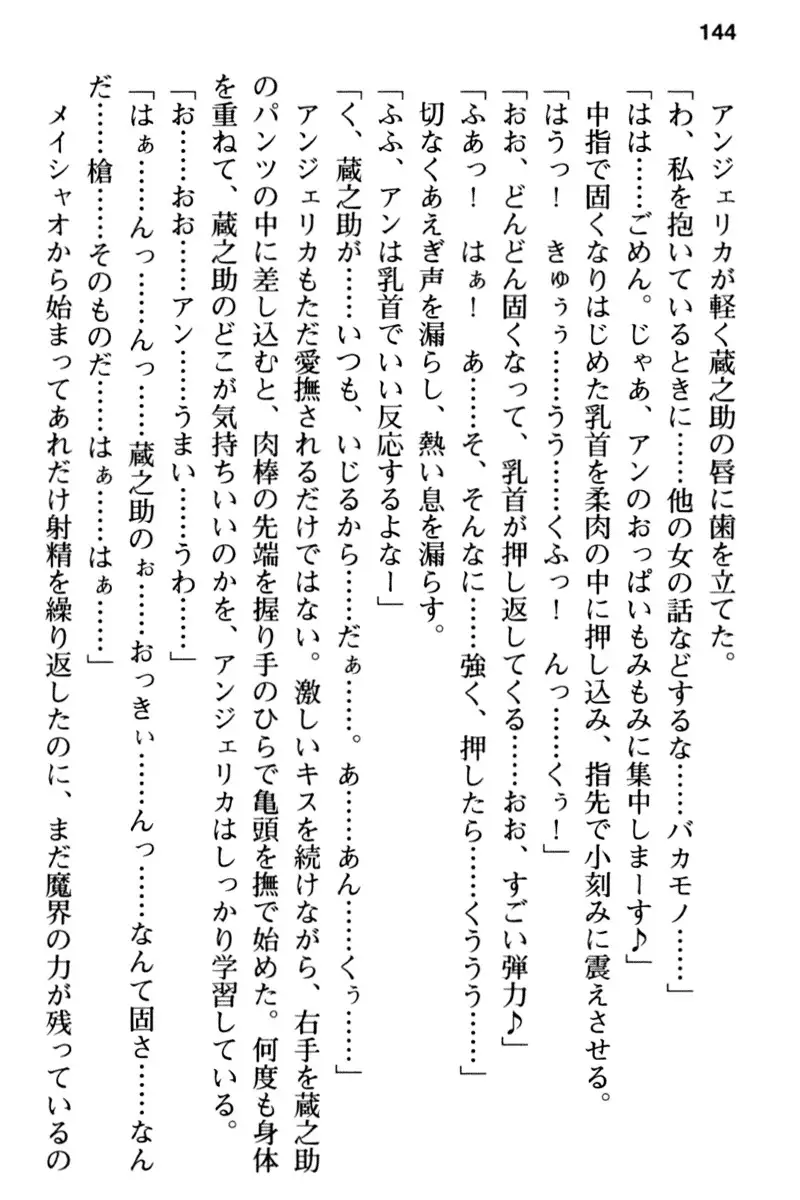 144
アンジェリカが軽く蔵之助の唇に歯を立てた。
「わ、私を抱いているときに……他の女の話などするな……バカモノ……」
「はは……ごめん。じゃあ、アンのおっぱいもみもみに集中しまーす♪」
中指で固くなりはじめた乳首を柔肉の中に押し込み、指先で小刻みに震えさせる。
「はうっ！　きゅぅぅ……うう……くふっ！　んっ……くぅ！」
「おお、どんどん固くなって、乳首が押し返してくる……おお、すごい弾力♪」
「ふあっ！　はぁ！　あ……そ、そんなに……強く、押したら……くううう……」
切なくあえぎ声を漏らし、熱い息を漏らす。
「ふふ、アンは乳首でいい反応するよなー」
「く、蔵之助が……いつも、いじるから……だぁ……。あ……あん……くぅ……」
アンジェリカもただ愛撫されるだけではない。激しいキスを続けながら、右手を蔵之助
のパンツの中に差し込むと、肉棒の先端を握り手のひらで亀頭を撫で始めた。何度も身体
を重ねて、蔵之助のどこが気持ちいいのかを、アンジェリカはしっかり学習している。
「お……おお……アン……うまい……うわ……」
「はぁ……んっ……んっ……蔵之助のぉ……おっきぃ……んっ……なんて固さ……なん
だ……槍……そのものだ……はぁ……はぁ……」
メイシャオから始まってあれだけ射精を繰り返したのに、まだ魔界の力が残っているの